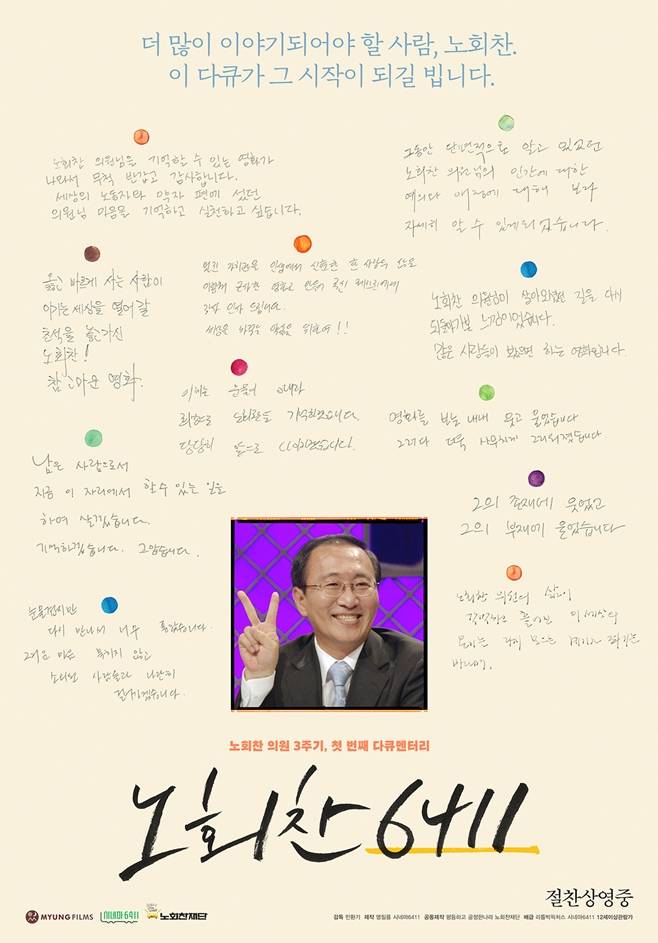 더 많이 이야기되어야 할 사람, 노회찬.
이 다큐가 그 시작이 되길 빕니다.
노회찬 의원님을 기억할 수 있는 영화가
나와서 무척 반갑고 감사합니다.
세상의 노동자와 약자 편에 섰던
의원님 마음을 기억하고 실천하고 싶습니다.
그동안 단편적으로 알고 있었던
노회찬 의원님의 인간에 대한
예의와 애정에 대해 보다
자세히 알 수 있게되었습니다.
옳고 바르게 사는 사람이
이기는 세상을 열어갈
초석을 놓으신
노회찬!
참 고마운 영화.
노회찬 의원님이 살아오셨던 길을 다시
되돌아가본 느낌이었습니다.
많은 사람들이 봤으면 하는 영화입니다.
이제는 눈물이 아니라
희망으로 노회찬을 기억하겠습니다.
당당히 앞으로 나아가겠습니다.
영화를 보는 내내 웃고 울었습니다
그리고 더욱 사무치게 그리워졌습니다
남은 사람으로서
지금 이 자리에서 할 수 있는 일을
하며 살겠습니다.
기억하겠습니다. 고맙습니다.
그의 존재에 웃었고
그의 부재에 울었습니다
다시 만나서 너무 좋았습니다.
노회찬 의원의 삶이
노회찬 의원 3주기, 첫 번째 다큐멘터리
노회찬6411
절찬상영중
MYUNG FILMS 시네마6411 노회찬재단
감독 민환기 제작 명필름 시네마6411 공동제작 평등하고 공정한나라 노회찬재단 배급 리틀빅픽처스 시네마6411 12세이상관람가